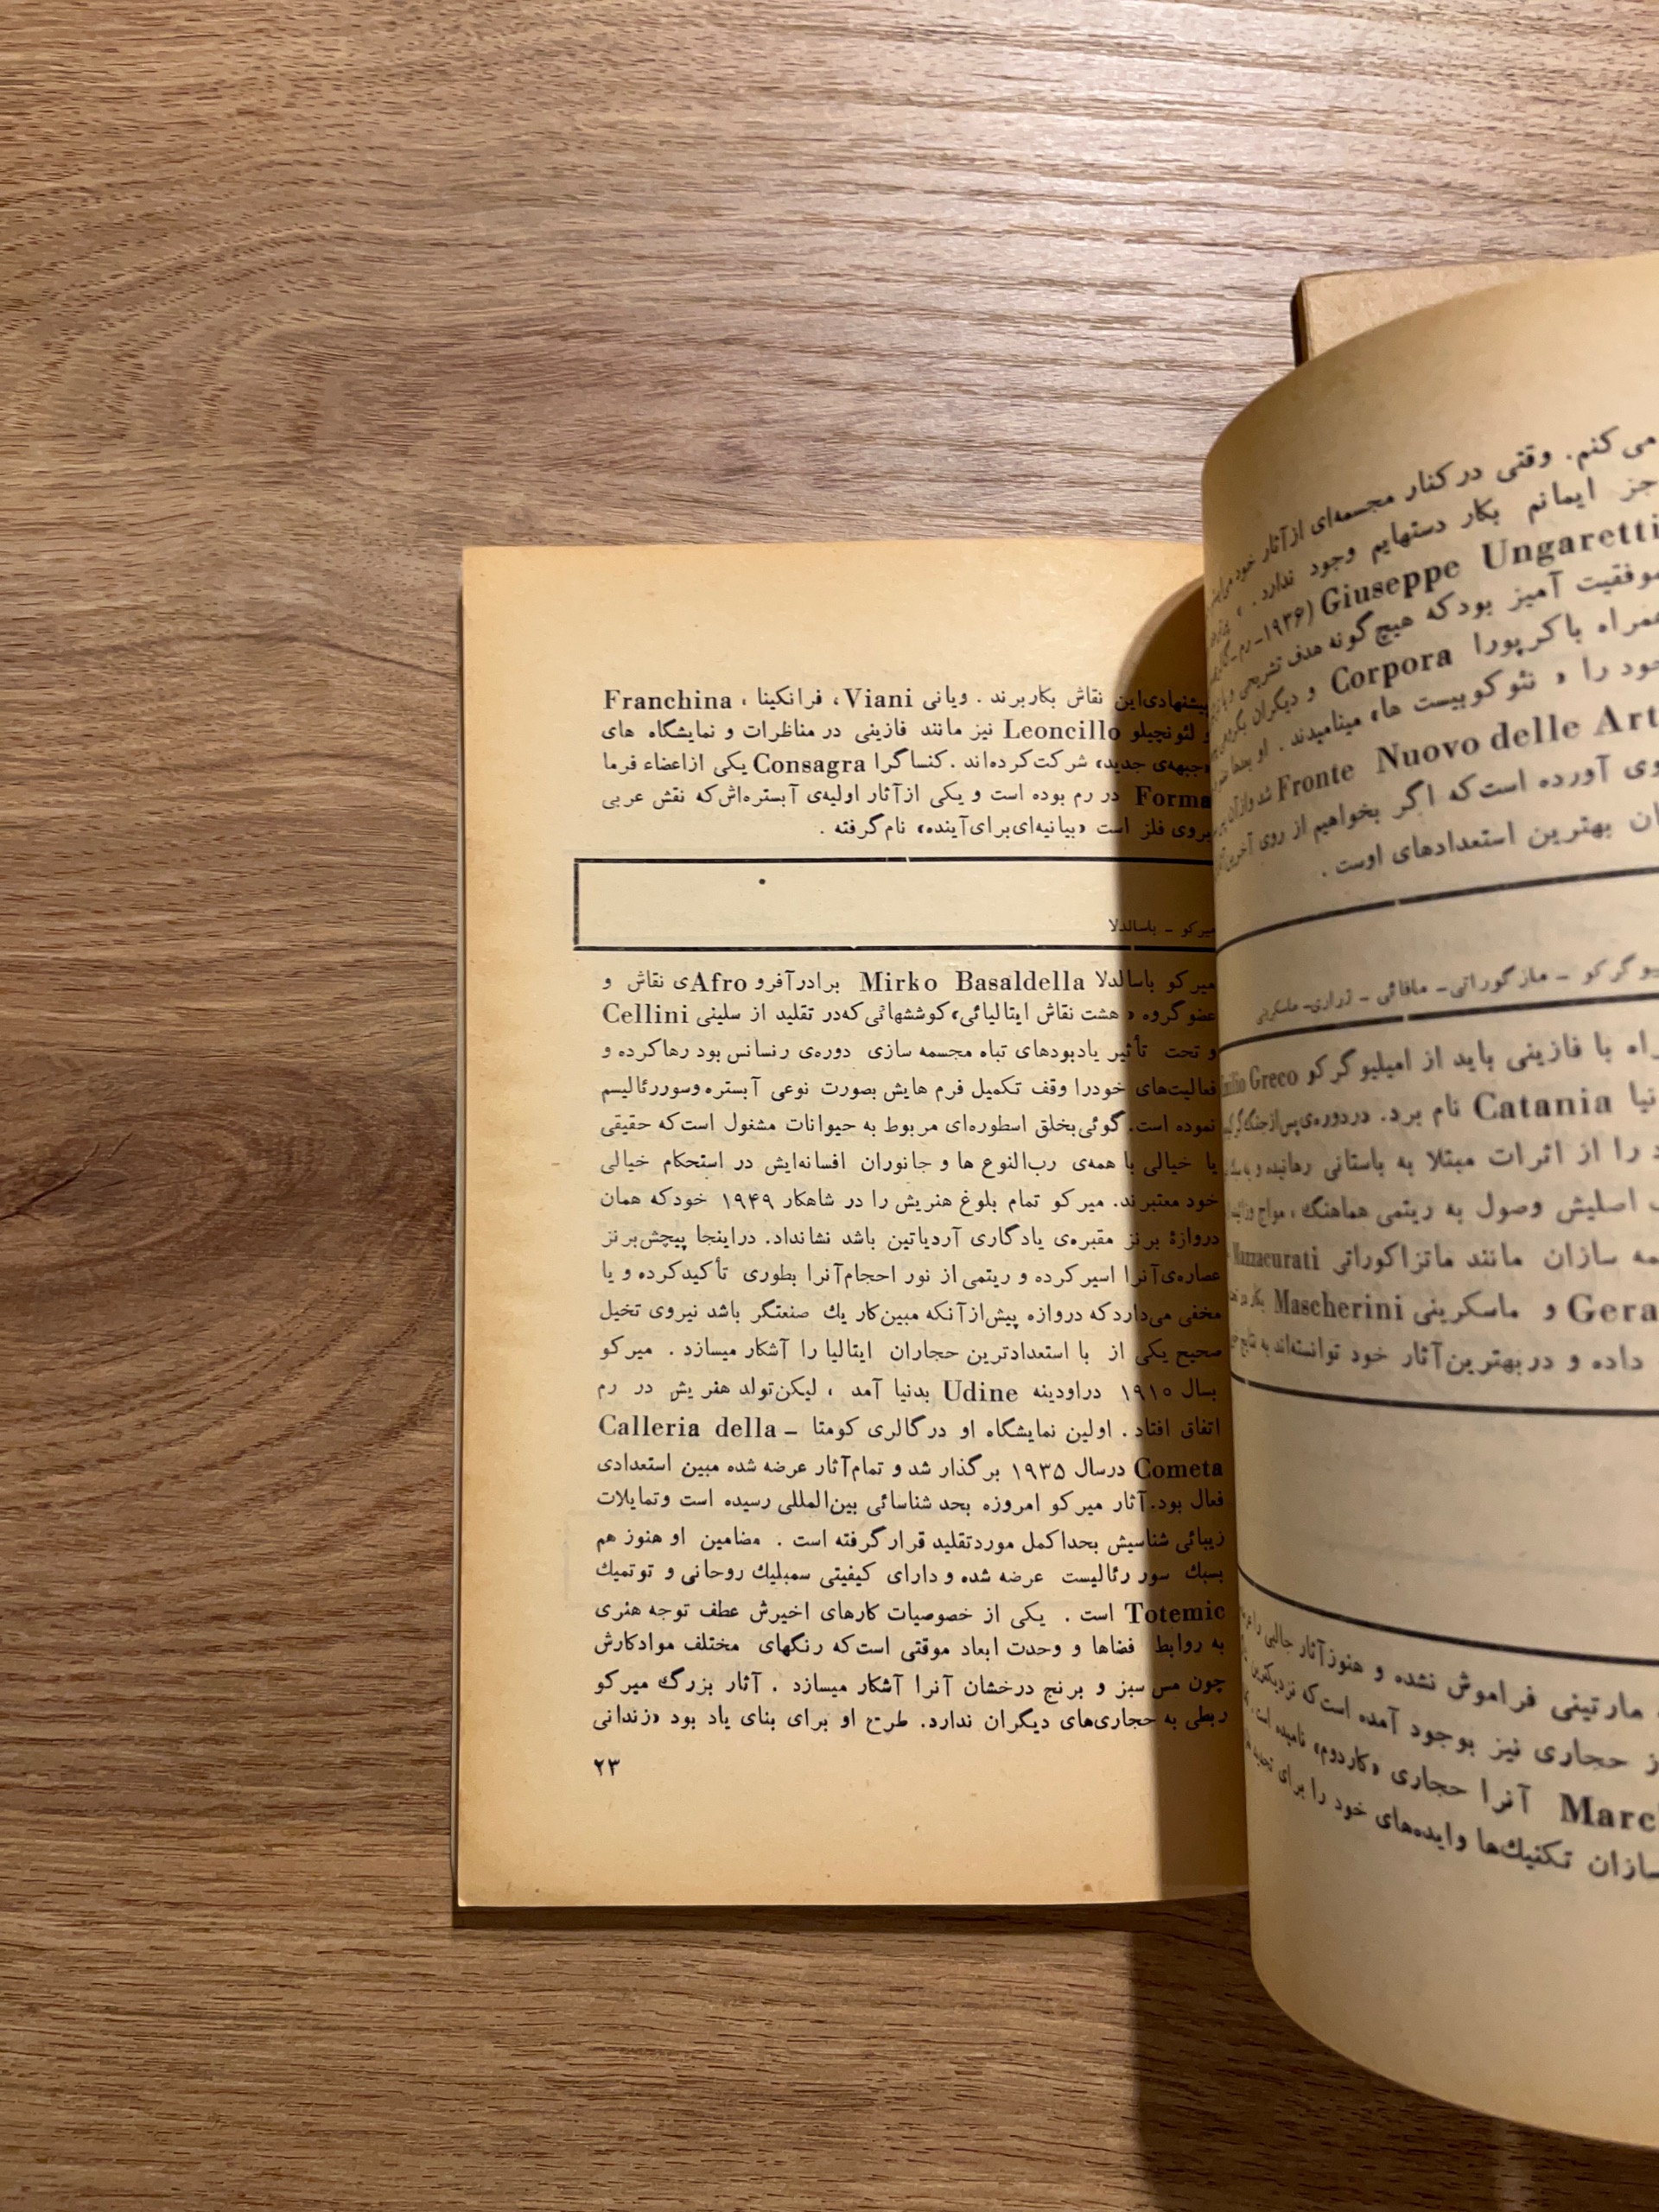 می‌کنم. وقتی در کنار مجسمه‌ای از آثار خود
جز ایمانم بکار دستهایم وجود ندارد . »
Giuseppe Ungaretti (۱۹۳۶- رم-
موفقیت آمیز بود که هیچ گونه هدف تشریحی
همراه با کرپورا Corpora و دیگران
خود را « نئو کوبیست ها» مینامیدند . او بعدها
Fronte Nuovo delle Art
وی آورده است که اگر بخواهیم از روی آخرین
ان بهترین استعدادهای اوست .
گرکو - مازگوراتی- مافائی - ژراری- ماسکرینی
راه با فازینی باید از امیلیو گرکو Emilio Greco
نیا Catania نام برد. در دوره‌ی پس از جنگ گرکو
د را از اثرات مبتلا به باستانی رهانیده و به
اصلیش وصول به ریتمی هماهنگ ، مواج
مه سازان مانند ماتزاکوراتی Mazzacurati
Gera و ماسکرینی Mascherini
داده و در بهترین آثار خود توانسته‌اند به نتایج
مارتینی فراموش نشده و هنوز آثار جالبی را
ز حجاری نیز بوجود آمده است که نزدیکترین
Marc آنرا حجاری «کاردوم» نامیده است
سازان تکنیك‌ها و ایده‌های خود را برای
پیشنهادی این نقاش بکار برند . ویانی Viani ، فرانکینا ، Franchina
و لئونچیلو Leoncillo نیز مانند فازینی در مناظرات و نمایشگاه های
«جبهه‌ی جدید» شرکت کرده‌اند . کنساگرا Consagra یکی از اعضاء فرما
Forma در رم بوده است و یکی از آثار اولیه‌ی آبستره‌اش که نقش عربی
بروی فلز است «بیانیه‌ای برای آینده» نام گرفته .
میرکو - باسالدلا
میرکو باسالدلا Mirko Basaldella برادر آفرو Afroی نقاش و
عضو گروه « هشت نقاش ایتالیائی» کوششهائی که در تقلید از سلینی Cellini
و تحت تأثیر یادبودهای تباه مجسمه سازی دوره‌ی رنسانس بود رها کرده و
فعالیت‌های خود را وقف تکمیل فرم هایش بصورت نوعی آبستره و سوررئالیسم
نموده است. گوئی بخلق اسطوره‌ای مربوط به حیوانات مشغول است که حقیقی
یا خیالی با همه‌ی رب‌النوع ها و جانوران افسانه‌ایش در استحکام خیالی
خود معتبرند. میرکو تمام بلوغ هنریش را در شاهکار ۱۹۴۹ خود که همان
دروازهٔ برنز مقبره‌ی یادگاری آردیاتین باشد نشانداد. در اینجا پیچش برنز
عصاره‌ی آنرا اسیر کرده و ریتمی از نور احجام آنرا بطوری تأکید کرده و یا
مخفی می‌دارد که دروازه پیش از آنکه مبین کار یك صنعتگر باشد نیروی تخیل
صحیح یکی از با استعدادترین حجاران ایتالیا را آشکار میسازد . میرکو
بسال ۱۹۱۰ در اودینه Udine بدنیا آمد ، لیکن تولد هنریش در رم
اتفاق افتاد . اولین نمایشگاه او در گالری کومتا - Calleria della
Cometa در سال ۱۹۳۵ برگذار شد و تمام آثار عرضه شده مبین استعدادی
فعال بود. آثار میرکو امروزه بحد شناسائی بین‌المللی رسیده است و تمایلات
زیبائی شناسیش بحد اکمل مورد تقلید قرار گرفته است . مضامین او هنوز هم
بسبك سور رئالیست عرضه شده و دارای کیفیتی سمبلیك روحانی و توتمیك
Totemic است . یکی از خصوصیات کارهای اخیرش عطف توجه هنری
به روابط فضاها و وحدت ابعاد موقتی است که رنگهای مختلف مواد کارش
چون مس سبز و برنج درخشان آنرا آشکار میسازد . آثار بزرگ میرکو
ربطی به حجاری‌های دیگران ندارد. طرح او برای بنای یاد بود «زندانی
۲۳